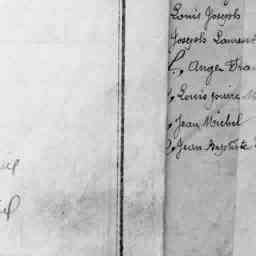 Louis Joseph
Joseph Laurent
Ange Fra
Louis pierre M
Jean Michel
Jean Baptiste